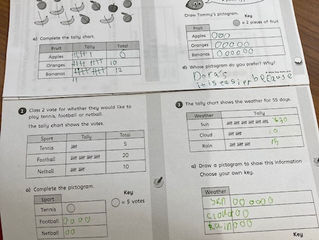 a) Complete the tally chart.
Fruit Tally Total
Apples
Oranges 10
Bananas 12
Draw Tommy's pictogram.
Key
= 2 pieces of fruit
Fruit
Apples
Oranges
Bananas
d) Whose pictogram do you prefer? Why?
Dora's
it is easier because
Class 2 vote for whether they would like
to play tennis, football or netball.
The tally chart shows the votes.
Sport Tally Total
Tennis 5
Football 20
Netball 10
a) Complete the pictogram.
Key
= 5 votes
Sport
Tennis
Football
Netball
3 The tally chart shows the weather for 55 days.
Weather Tally
Sun 30
Cloud 10
Rain 15
a) Draw a pictogram to show this information
Choose your own key.
Weather
Sun
Cloud
Rain
Key